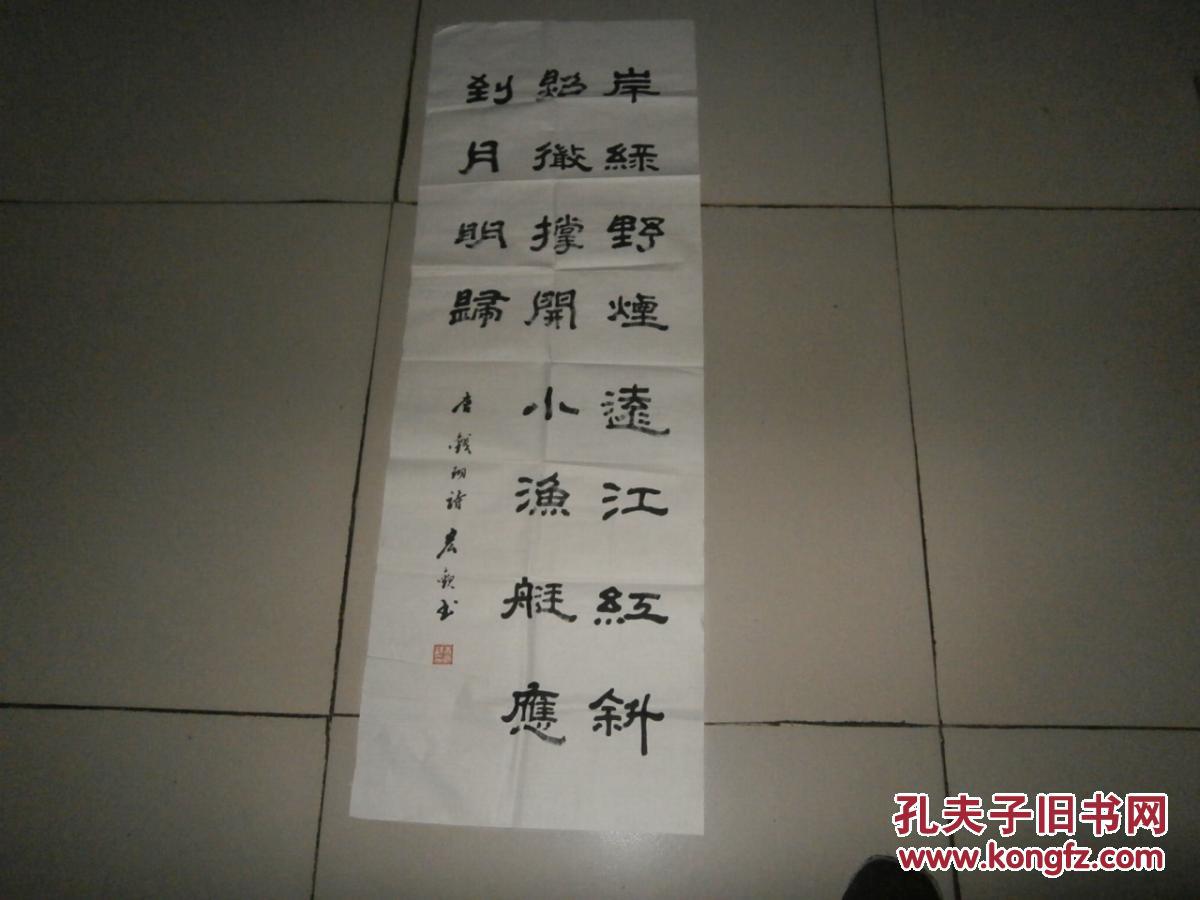 岸綠野煙遠江紅斜
照微撐開小漁艇應
到月明歸
唐錢珝詩 書
孔夫子旧书网
www.kongfz.com